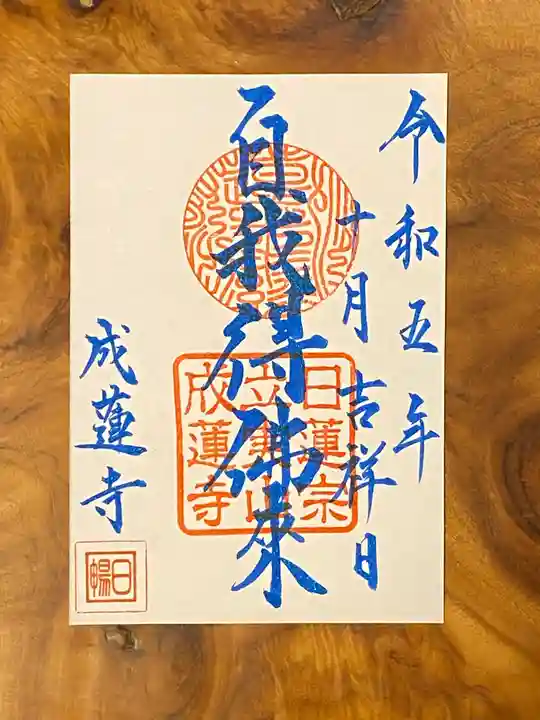 令和五年
十月吉祥日
自我得佛來
日蓮宗
成蓮寺
成蓮寺